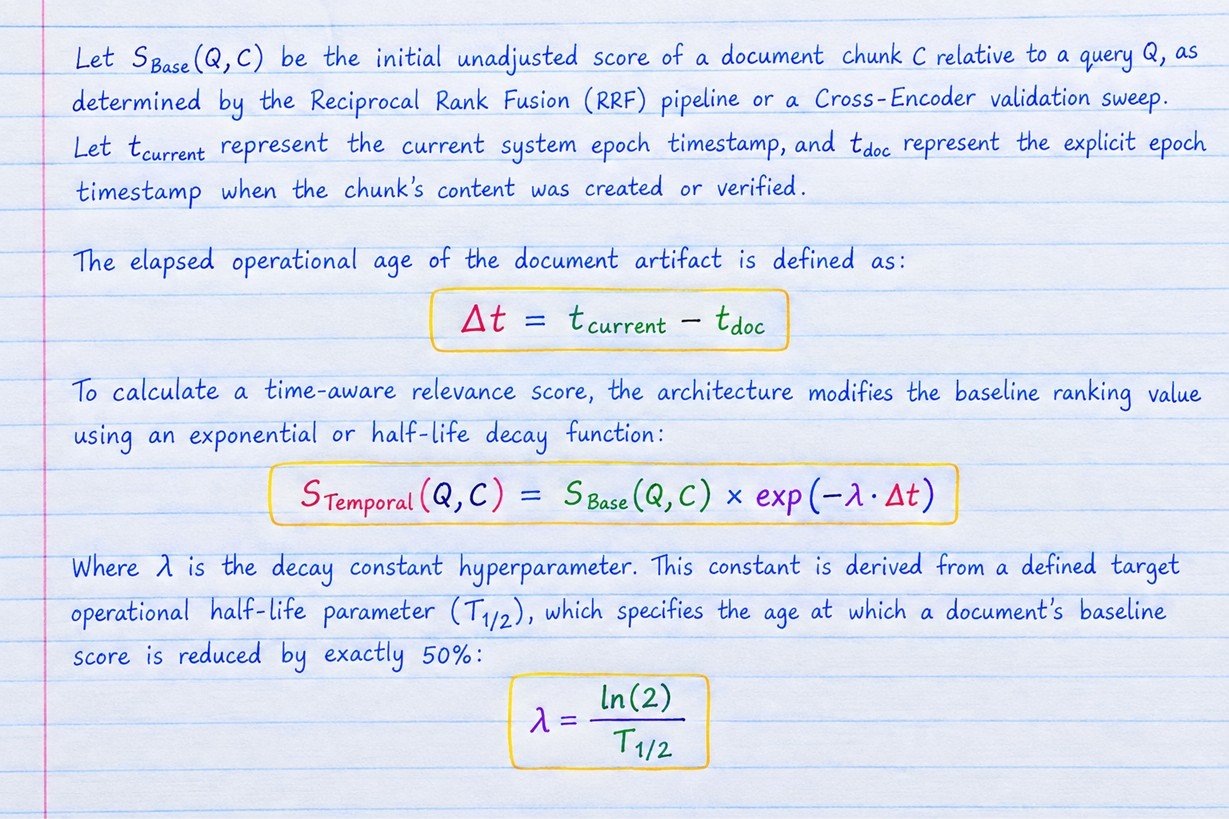 Let S_Base(Q, C) be the initial unadjusted score of a document chunk C relative to a query Q, as
determined by the Reciprocal Rank Fusion (RRF) pipeline or a Cross-Encoder validation sweep.
Let t_current represent the current system epoch timestamp, and t_doc represent the explicit epoch
timestamp when the chunk's content was created or verified.
The elapsed operational age of the document artifact is defined as:
Δt = t_current − t_doc
To calculate a time-aware relevance score, the architecture modifies the baseline ranking value
using an exponential or half-life decay function:
S_Temporal(Q, C) = S_Base(Q, C) × exp(−λ · Δt)
Where λ is the decay constant hyperparameter. This constant is derived from a defined target
operational half-life parameter (T_1/2), which specifies the age at which a document's baseline
score is reduced by exactly 50%:
λ = ln(2) / T_1/2